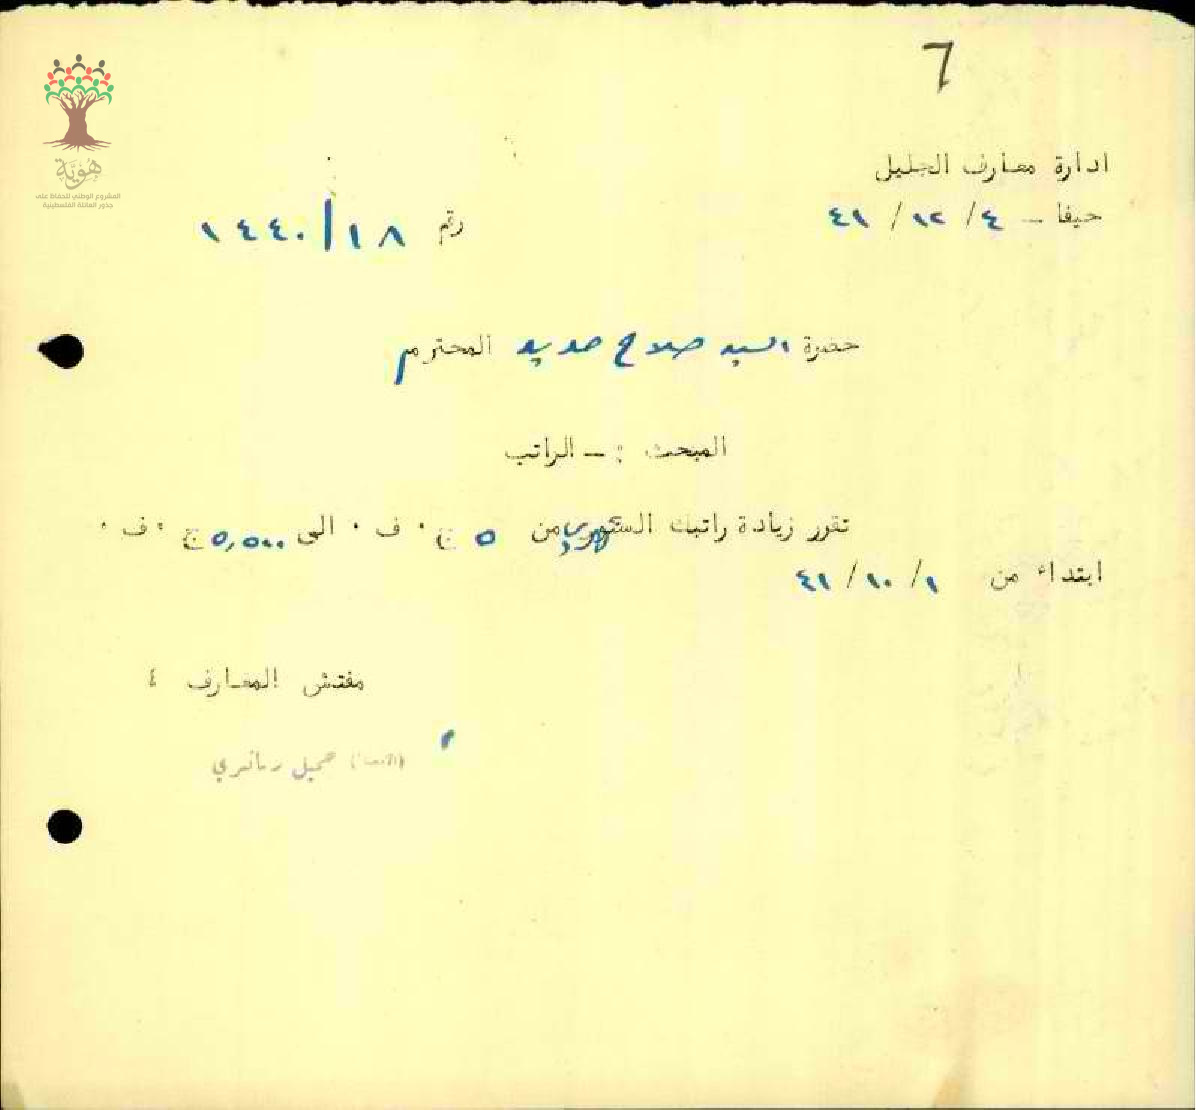 6
هُوِيَّة
المشروع الوطني للحفاظ على
جذور العائلة الفلسطينية
ادارة معارف الجليل
حيفا - ٤ / ١٢ / ٤١
رقم ١٨/١٤٤٠
حضرة السيد صلاح حديد المحترم
المبحث :- الراتب
تقرر زيادة راتبك من ٥ ج ٠ ف ٠ الى ٥,٥٠٠ ج ٠ ف ٠
ابتداء من ١ / ١٠ / ٤١
مفتش المعارف ٤
جميل